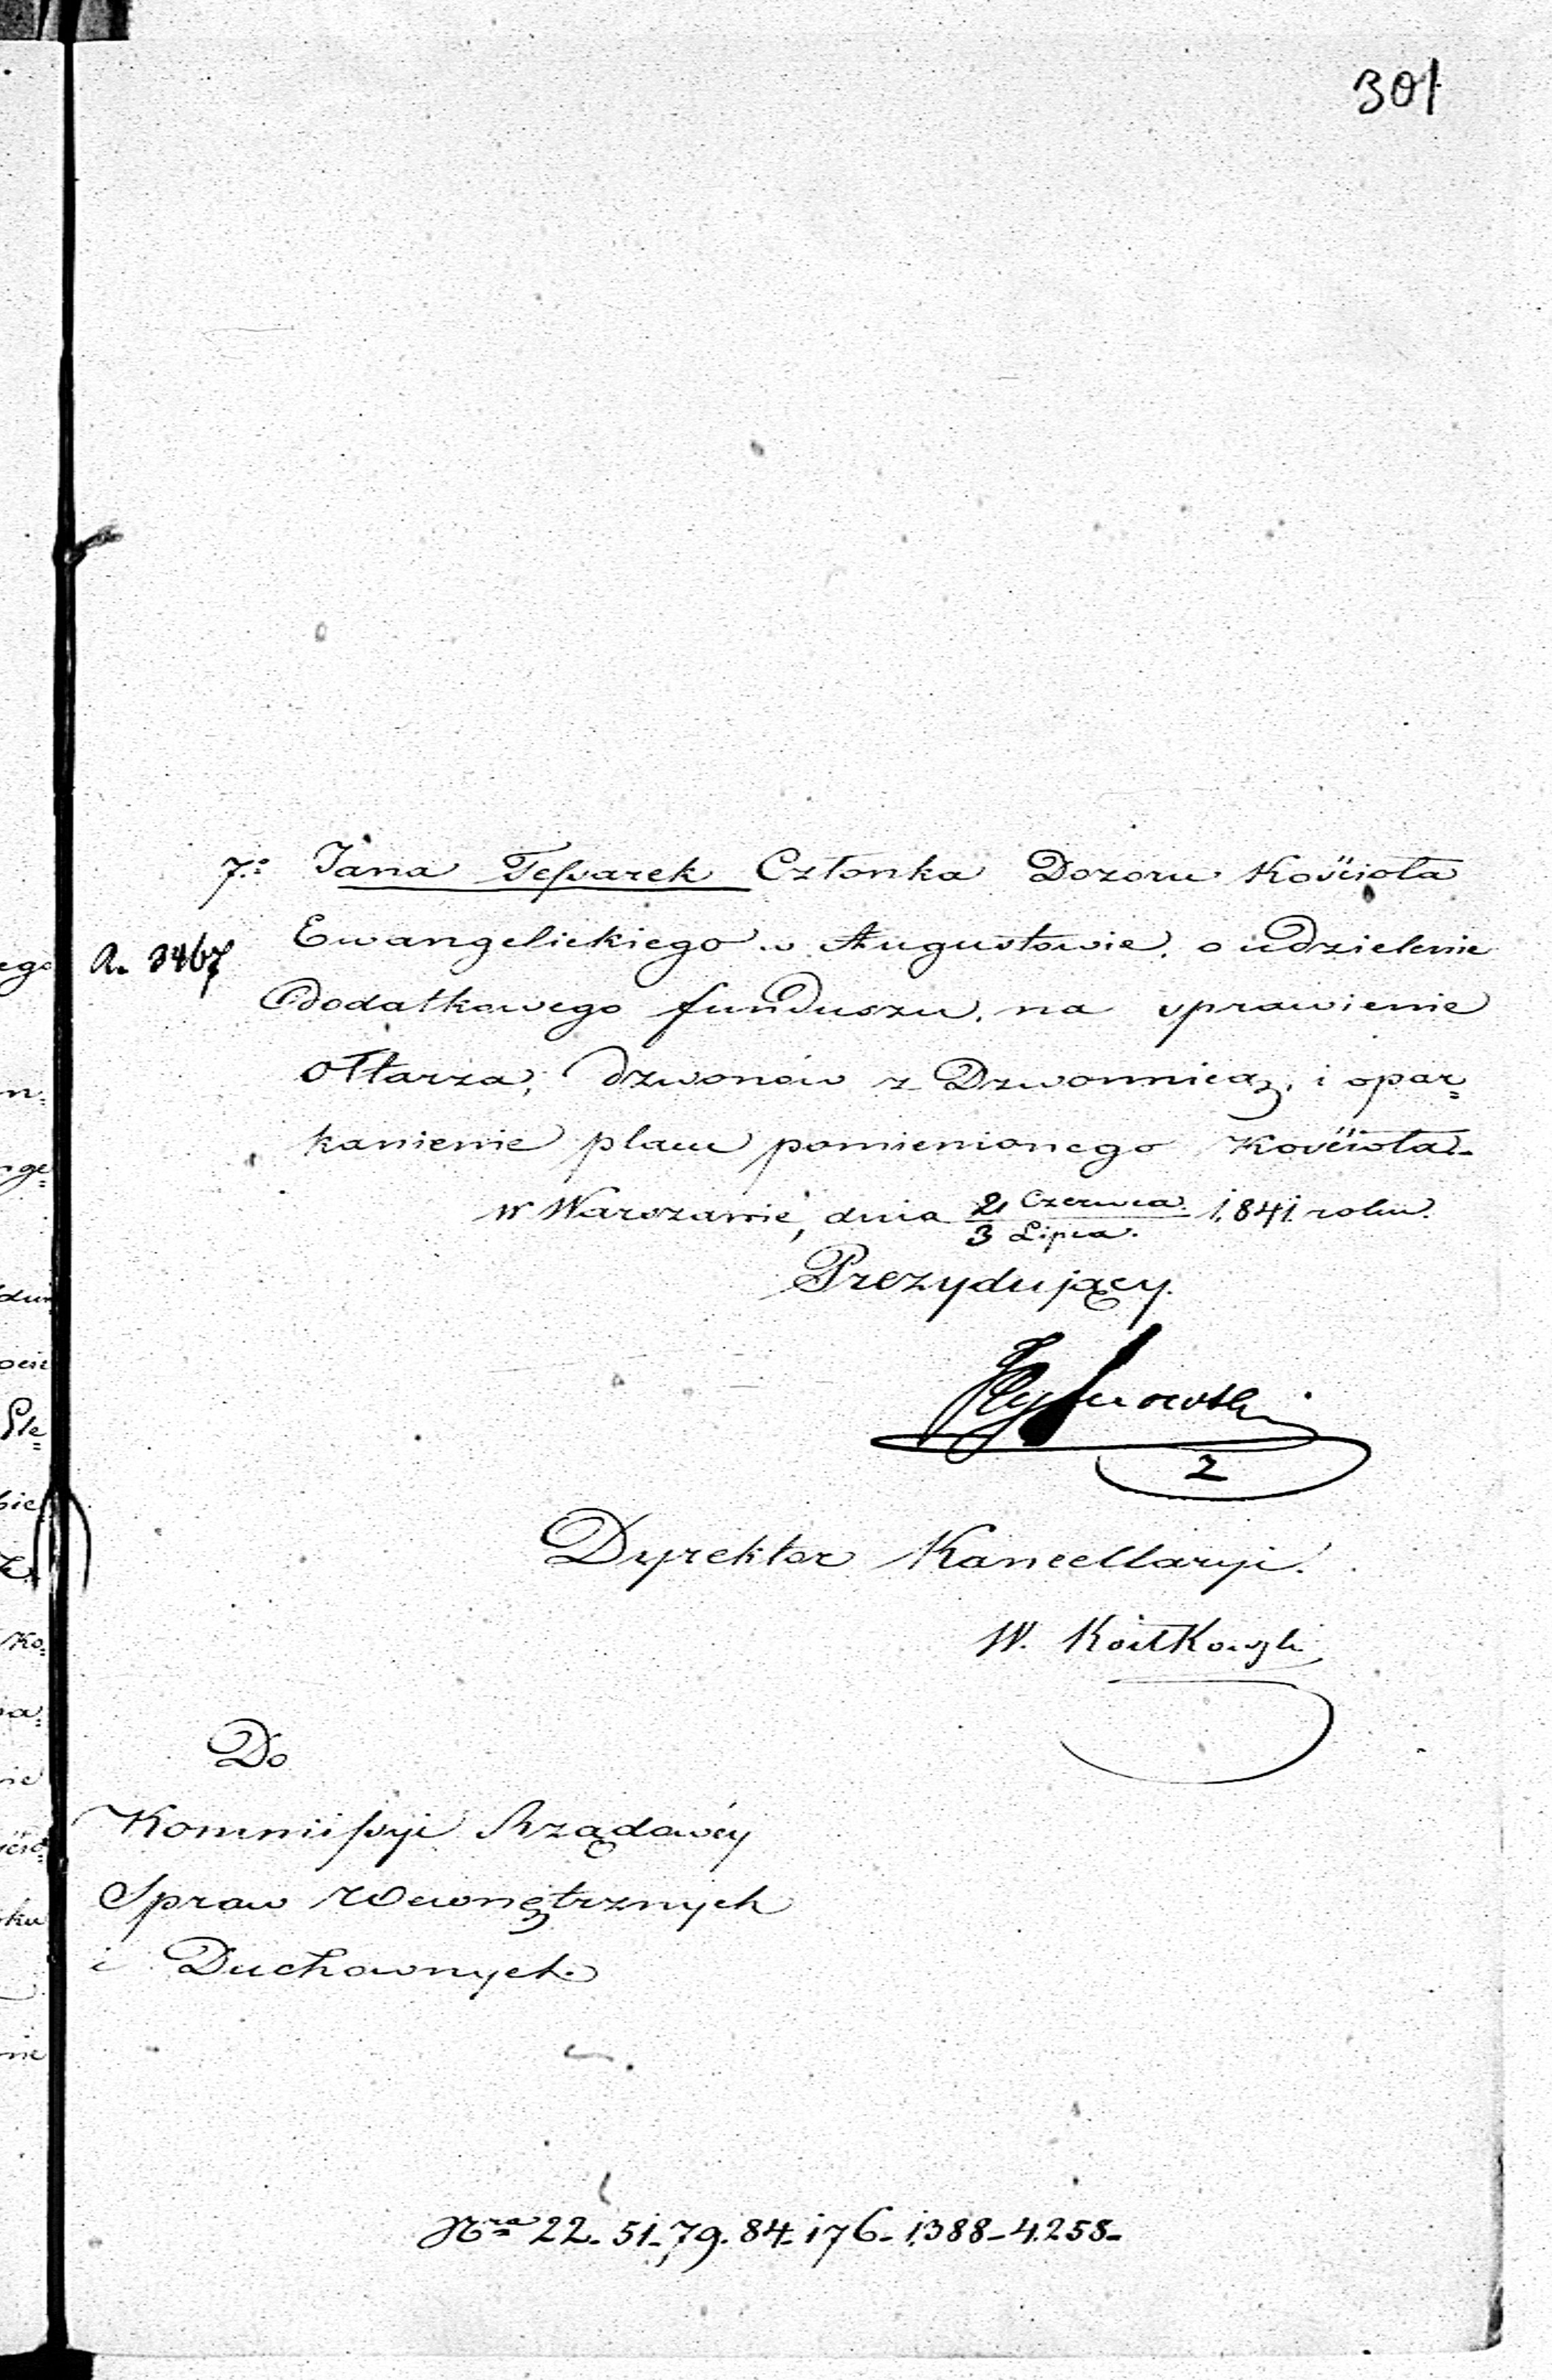 301
7.: Jana Tessarek Członka Dozoru Kościoła
A. 3467
Ewangelickiego w Augustowie, o udzielenie
dodatkowego funduszu, na sprawienie
Ołtarza, dzwonów z Dzwonnicą, i opar=
kanienie placu pomienionego Kościoła.
w Warszawie, dnia 21 Czerwca / 3 Lipca 1841 roku.
Prezydujący.
Dyrektor Kancellaryi.
W.
Do
Kommissyi Rządowéy
Spraw Wewnętrznych
i Duchownych.
Nra 22. 51. 79. 84. 176. 1388. 4258.